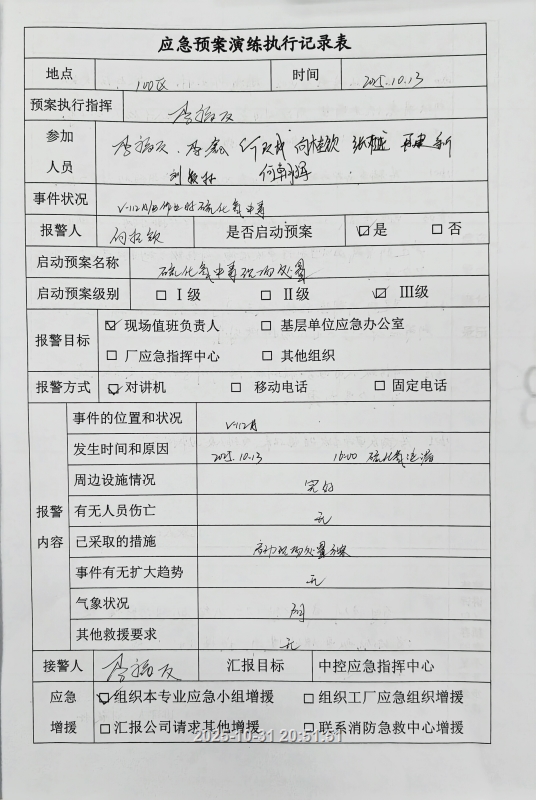 应急预案演练执行记录表
地点 100区 时间 2025.10.13
预案执行指挥
参加
人员
事件状况 硫化氢中毒
报警人 是否启动预案 ☑是 □否
启动预案名称 硫化氢中毒现场处置
启动预案级别 □Ⅰ级 □Ⅱ级 ☑Ⅲ级
报警目标 ☑现场值班负责人 □基层单位应急办公室
□厂应急指挥中心 □其他组织
报警方式 ☑对讲机 □移动电话 □固定电话
报警
内容
事件的位置和状况 V-112
发生时间和原因 2025.10.13 16:00 硫化氢泄漏
周边设施情况 完好
有无人员伤亡 无
已采取的措施 启动现场处置方案
事件有无扩大趋势 无
气象状况 阴
其他救援要求 无
接警人 汇报目标 中控应急指挥中心
应急
增援
☑组织本专业应急小组增援 □组织工厂应急组织增援
□汇报公司请求其他增援 □联系消防急救中心增援
2025-10-31 20:51:51